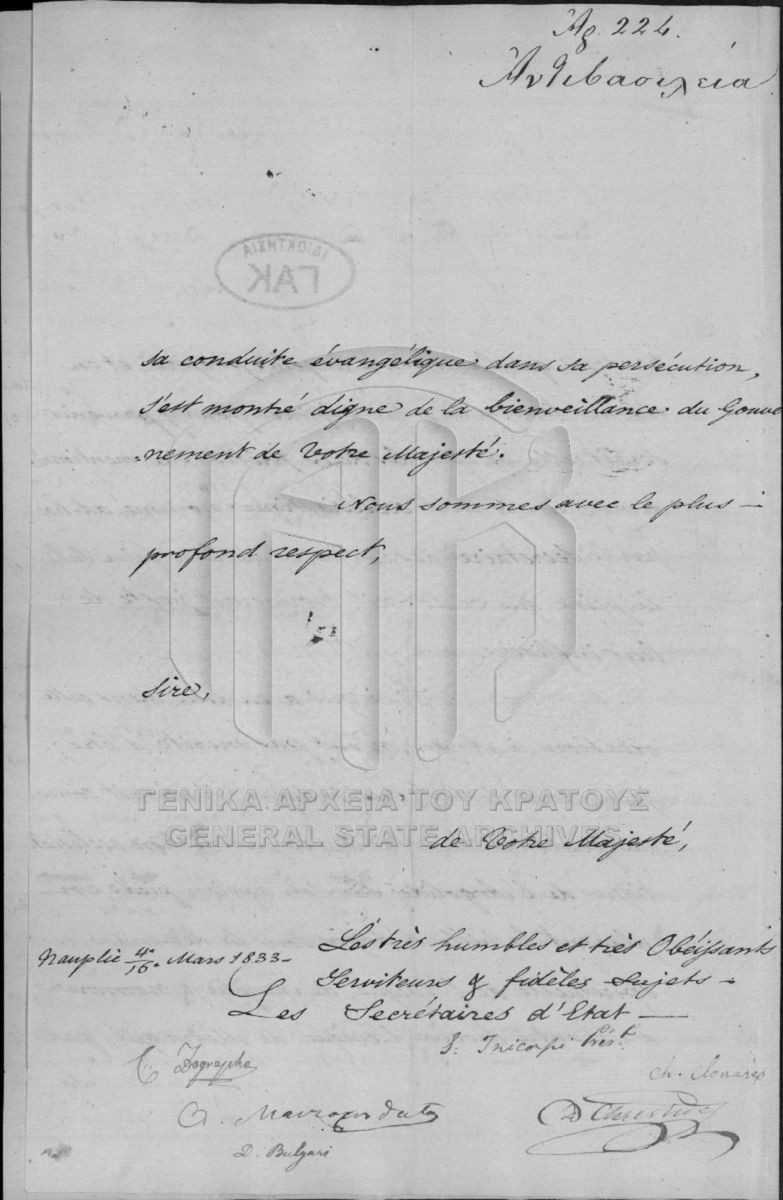 Αρ. 224.
Ἀντιβασιλεία
ΙΔΙΟΚΤΗΣΙΑ
ΓΑΚ
sa conduite évangélique dans sa persécution,
s'est montré digne de la bienveillance du Gouver
nement de Votre Majesté.
Nous sommes avec le plus -
profond respect,
Sire,
ΓΕΝΙΚΑ ΑΡΧΕΙΑ ΤΟΥ ΚΡΑΤΟΥΣ
GENERAL STATE ARCHIVES
de Votre Majesté,
Les très humbles et très Obéissants
Nauplie 4/16 Mars 1833-
Serviteurs & fidèles sujets -
Les Secrétaires d'Etat —
S. Tricoupi Prést.
C. Zographo
Ch. Clonarès
A. Mavrocordato
D. Christides
D. Bulgari